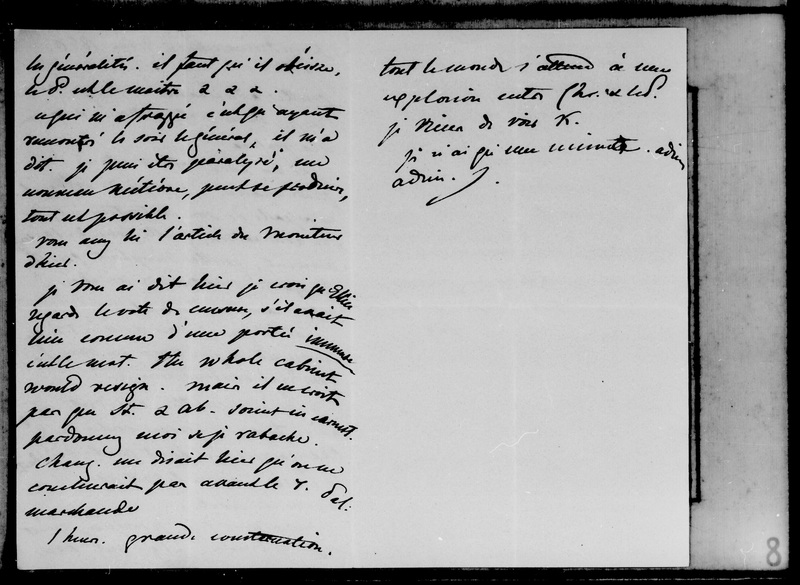 la généralité. il faut qu'il obéisse,
le P. est le maitre 2 2 2.
ce qui m'a frappé c'est qu'ayant
rencontré le soir le général, il m'a
dit. je puis être paralysé, un
nouveau météore, peut se produire,
tout est possible.
vous avez lu l'article du Moniteur
d'hier.
je vous ai dit hier je crois qu'Ellice
regarde le vote de censure, s'il avait
lieu comme d'une portée immense
c'est le mot. the whole cabinet
would resign. mais il ne croit
pas que St. 2 ab. soient in earnest.
pardonnez moi si je rabache.
Chang. me disait hier qu'on ne
conclurait pas avant le 7.
marchande
1 heure. grande consternation.
tout le monde s'attend à une
explosion entre Ch. & le P.
je viens de voir K.
je n'ai qu'une minute. adieu
adieu.
8